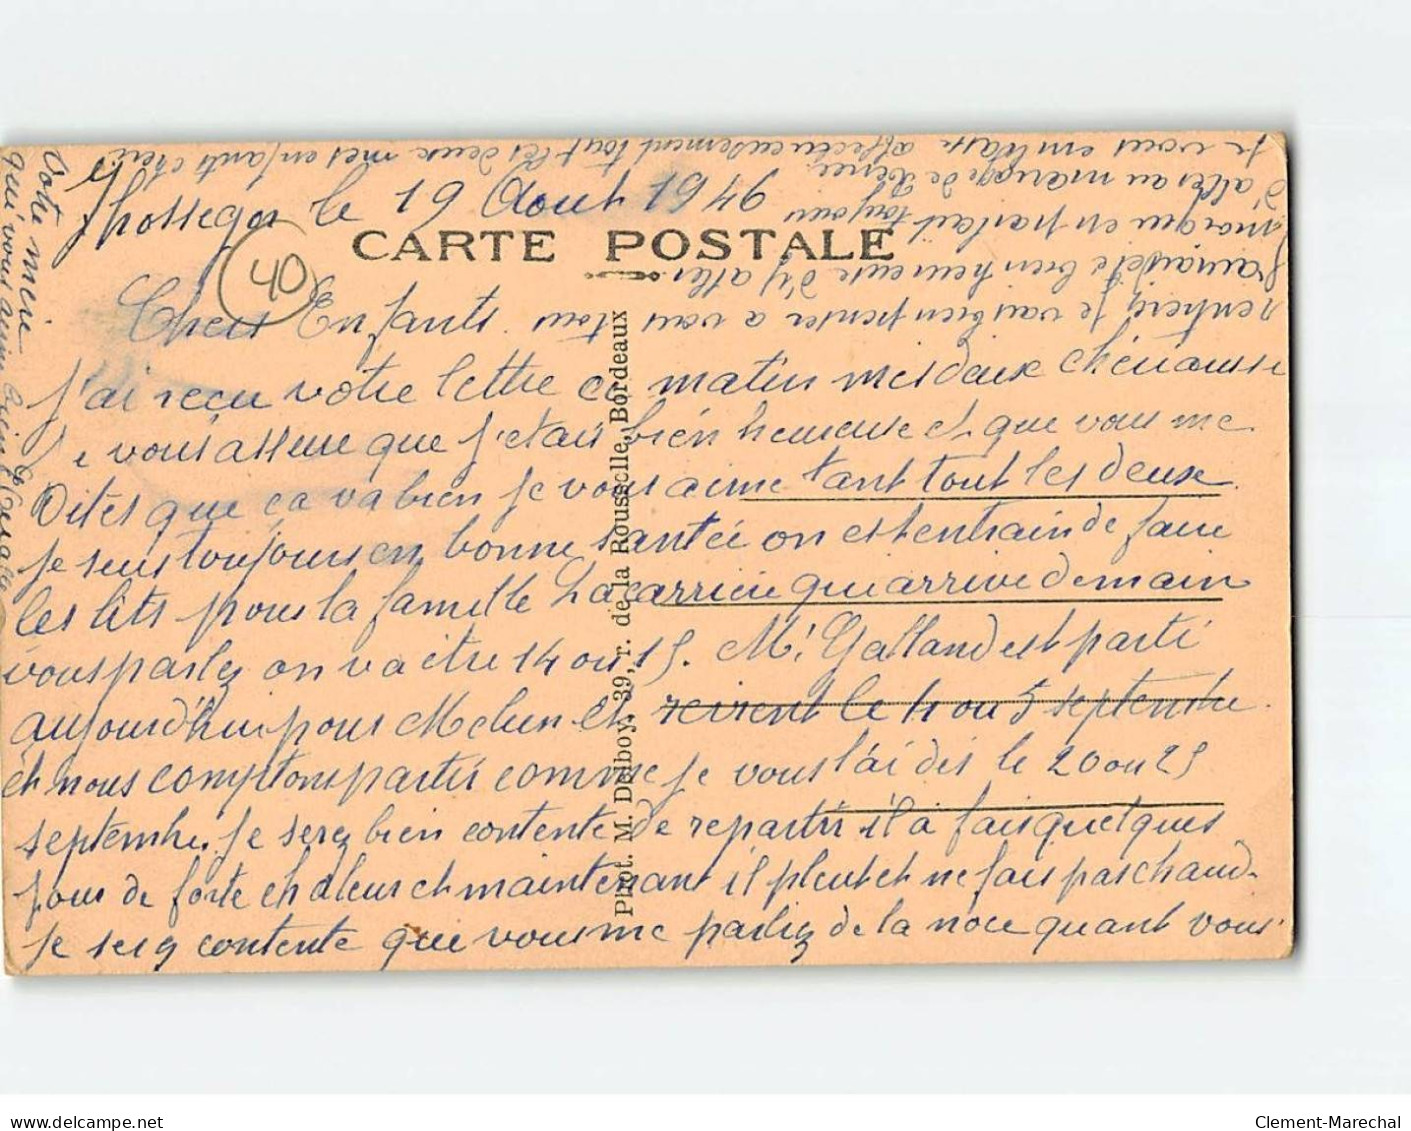 Hossegor le 19 Aout 1946
CARTE POSTALE
40
Chers Enfants
J'ai reçu votre lettre ce matin mes deux chéri aussi
Je vous assure que j'etais bien heureuse et que vous me
Dites que ça va bien je vous aime tant tout les deux
je suis toujours en bonne santée on est entrain de faire
les lits pour la famille Lacarrieu qui arrive demain
vous parlez on va être 14 ou 15. Mr Galland est parti
aujourd'hui pour Melun et revient le 4 ou 5 septembre
et nous comptons partir comme je vous l'ai dis le 20 ou 25
septembre. je serez bien contente de repartir il a fais quelques
jour de forte chaleur et maintenant il pleut et ne fais pas chaud
je serez contente que vous me parliez de la noce quant vous
rentrerez je vais bien penser a vous tous
j'aurais été bien heureuse d'y aller
en parlant toujours
d'aller au mariage de
Je vous embrasse affectueusement tout les deux mes enfants chéri
Votre mère
qui vous aime
Phot. M. Delboy, 39, r. de la Rousselle, Bordeaux
delcampe.net
Clement-Marechal